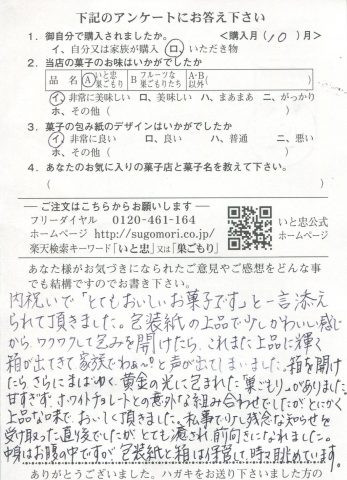 下記のアンケートにお答え下さい
1. 御自分で購入されましたか。 <購入月(10)月>
イ、自分又は家族が購入 ロ、いただき物
2. 当店の菓子のお味はいかがでしたか
品 名 A いと忠巣ごもり B フルーツな巣ごもりたち A・B以外( )
イ、非常に美味しい ロ、美味しい ハ、まあまあ ニ、がっかり
ホ、その他( )
3. 菓子の包み紙のデザインはいかがでしたか
イ、非常に良い ロ、良い ハ、普通 ニ、悪い
ホ、その他( )
4. あなたのお気に入りの菓子店と菓子名を教えて下さい。
( )
ご注文はこちらからお願いします
フリーダイヤル 0120-461-164
ホームページ http://sugomori.co.jp/
楽天検索キーワード「いと忠」又は「巣ごもり」
いと忠公式
ホームページ
あなた様がお気づきになられたご意見やご感想をどんな事
でも結構ですのでお書き下さい。
内祝いで「とてもおいしいお菓子です」と一言添え
られて頂きました。包装紙の上品で少しかわいい感じ
から、ワクワクして包みを開けたら、これまた上品に輝く
箱が出てきて家族でわぁ〜。と声が出てしまいました。箱を開け
たら、さらにまばゆく黄金の光に包まれた「巣ごもり」がありました。
甘すぎず、ホワイトチョコレートとの意外な組み合わせでしたがとにかく
上品な味で、おいしく頂きました。私事で少し残念な知らせを
受け取った直後でしたが、とても癒され前向きになれました。
中身はお腹の中ですが、包装紙と箱は保管して時々眺めています。
ありがとうございました。ハガキをお送り下さいました方の